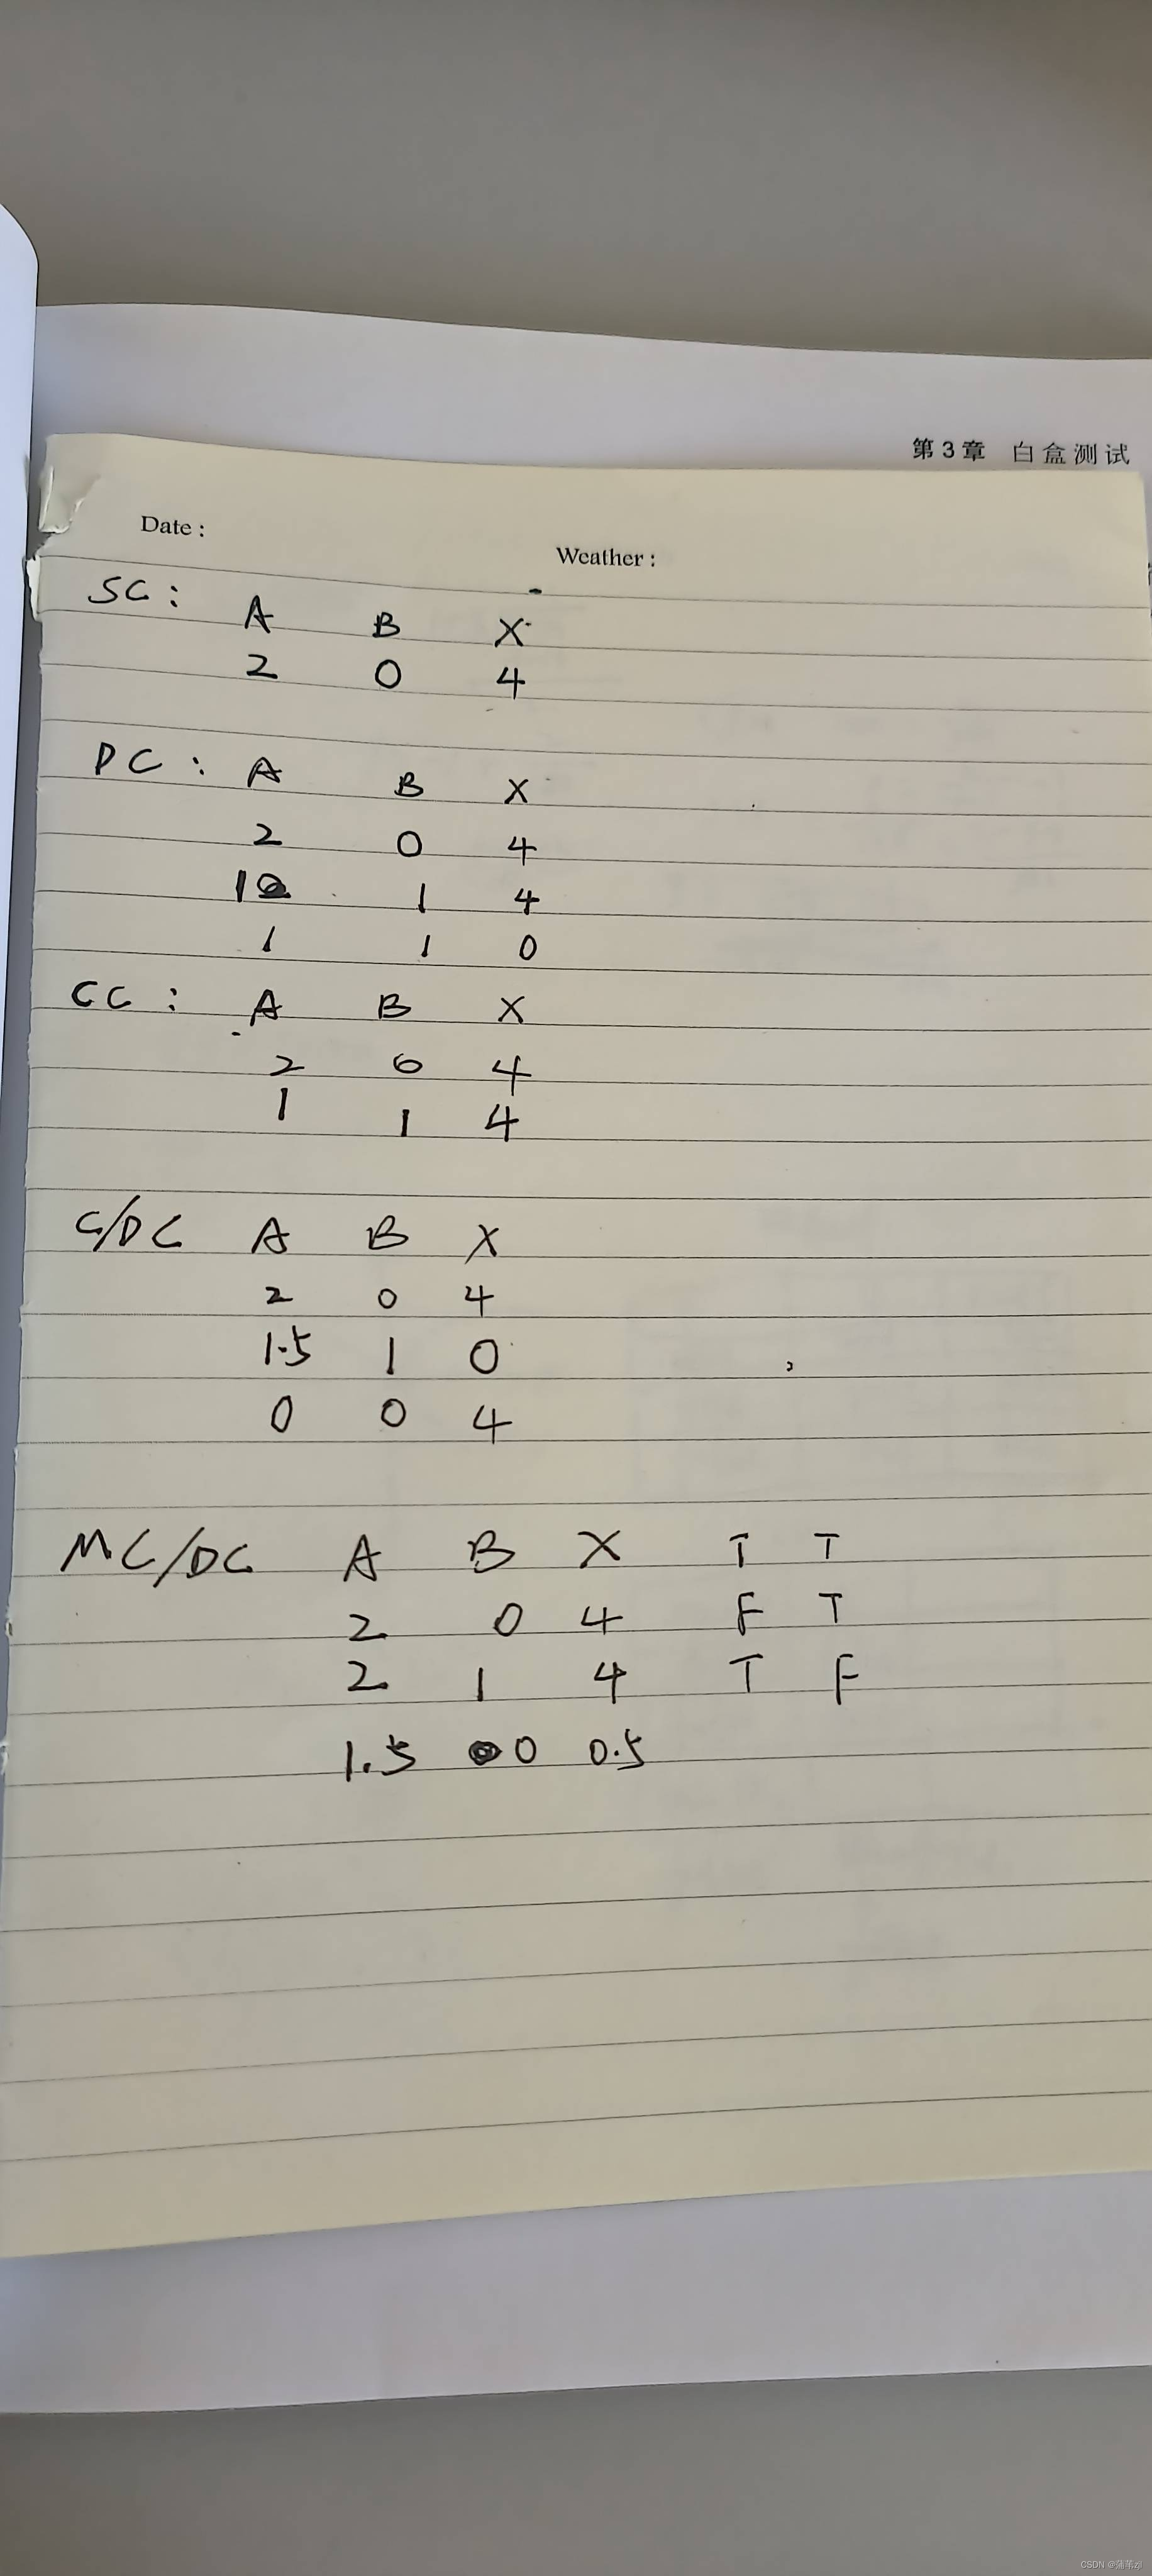 第3章 白盒测试
Date :
Weather :
SC: A B X
2 0 4
DC: A B X
2 0 4
1 1 4
1 1 0
CC: A B X
2 0 4
1 1 4
C/DC A B X
2 0 4
1.5 1 0
0 0 4
MC/DC A B X T T
2 0 4 F T
2 1 4 T F
1.5 0 0.5
CSDN @蒲苇zjl